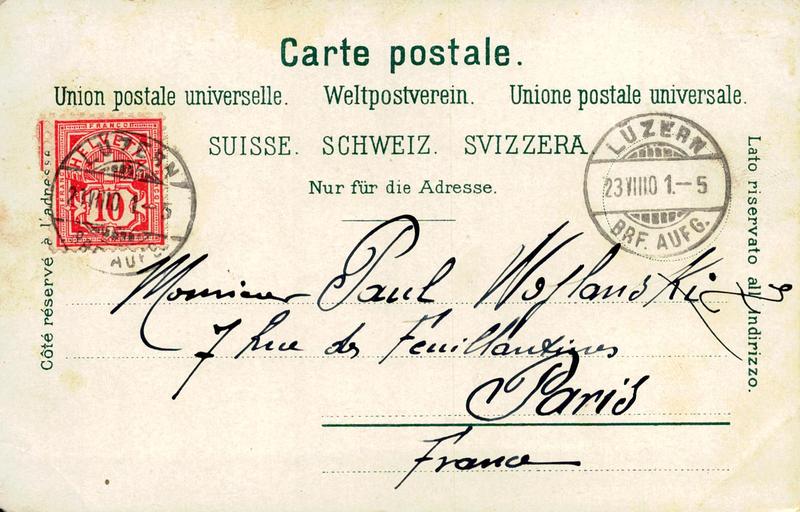 Carte postale.
Union postale universelle. Weltpostverein. Unione postale universale.
SUISSE. SCHWEIZ. SVIZZERA
Nur für die Adresse.
Côté réservé à l'adresse
FRANCO
HELVETIA
10
LUZERN
23 VIII 01.-5
BRF. AUFG.
LUZERN
23 VIII 01.-5
BRF. AUFG.
Lato riservato all'indirizzo.
Monsieur Paul Woglanski
7 Rue des Feuillantines
Paris
France